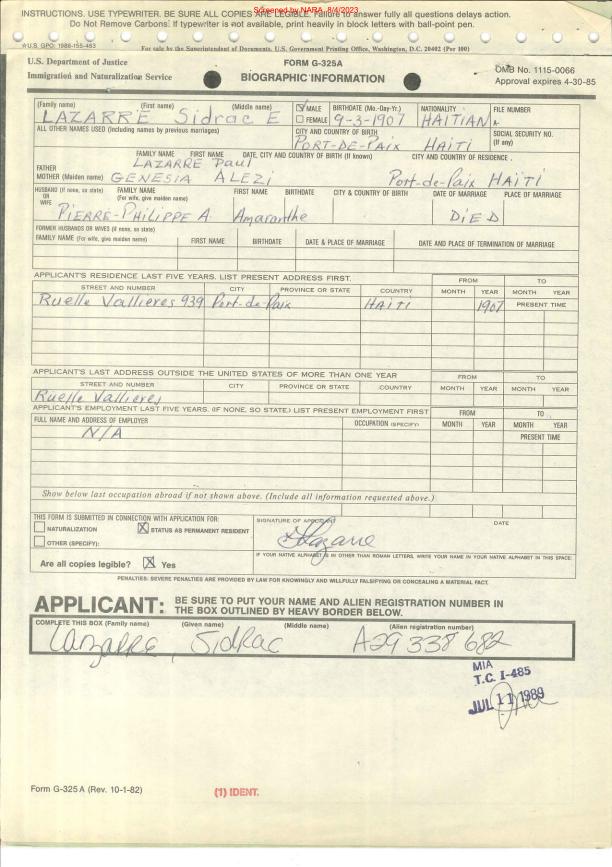 Screened by NARA, 8/4/2023
INSTRUCTIONS. USE TYPEWRITER. BE SURE ALL COPIES ARE LEGIBLE. Failure to answer fully all questions delays action.
Do Not Remove Carbons: If typewriter is not available, print heavily in block letters with ball-point pen.
☆U.S. GPO: 1986-155-463
For sale by the Superintendent of Documents, U.S. Government Printing Office, Washington, D.C. 20402 (Per 100)
U.S. Department of Justice
Immigration and Naturalization Service
FORM G-325A
BIOGRAPHIC INFORMATION
OMB No. 1115-0066
Approval expires 4-30-85
(Family name) (First name) (Middle name) MALE BIRTHDATE (Mo.-Day-Yr.) NATIONALITY FILE NUMBER
LAZARRE Sidrac E FEMALE 9-3-1907 HAITIAN A-
ALL OTHER NAMES USED (Including names by previous marriages) CITY AND COUNTRY OF BIRTH SOCIAL SECURITY NO. (If any)
PORT-DE-PAIX HAITI
FAMILY NAME FIRST NAME DATE, CITY AND COUNTRY OF BIRTH (If known) CITY AND COUNTRY OF RESIDENCE
FATHER LAZARRE Paul
MOTHER (Maiden name) GENESIA ALEZI Port-de-Paix HAITI
HUSBAND (If none, so state) OR WIFE FAMILY NAME (For wife, give maiden name) FIRST NAME BIRTHDATE CITY & COUNTRY OF BIRTH DATE OF MARRIAGE PLACE OF MARRIAGE
PIERRE-PHILIPPE A. Amaranthe DIED
FORMER HUSBANDS OR WIVES (if none, so state)
FAMILY NAME (For wife, give maiden name) FIRST NAME BIRTHDATE DATE & PLACE OF MARRIAGE DATE AND PLACE OF TERMINATION OF MARRIAGE
APPLICANT'S RESIDENCE LAST FIVE YEARS. LIST PRESENT ADDRESS FIRST. FROM TO
STREET AND NUMBER CITY PROVINCE OR STATE COUNTRY MONTH YEAR MONTH YEAR
Ruelle Vallieres 939 Port-de-Paix HAITI 1907 PRESENT TIME
APPLICANT'S LAST ADDRESS OUTSIDE THE UNITED STATES OF MORE THAN ONE YEAR FROM TO
STREET AND NUMBER CITY PROVINCE OR STATE COUNTRY MONTH YEAR MONTH YEAR
Ruelle Vallieres
APPLICANT'S EMPLOYMENT LAST FIVE YEARS. (IF NONE, SO STATE) LIST PRESENT EMPLOYMENT FIRST FROM TO
FULL NAME AND ADDRESS OF EMPLOYER OCCUPATION (SPECIFY) MONTH YEAR MONTH YEAR
N/A PRESENT TIME
Show below last occupation abroad if not shown above. (Include all information requested above.)
THIS FORM IS SUBMITTED IN CONNECTION WITH APPLICATION FOR: SIGNATURE OF APPLICANT DATE
NATURALIZATION X STATUS AS PERMANENT RESIDENT
OTHER (SPECIFY):
Are all copies legible? X Yes
IF YOUR NATIVE ALPHABET IS IN OTHER THAN ROMAN LETTERS, WRITE YOUR NAME IN YOUR NATIVE ALPHABET IN THIS SPACE:
PENALTIES: SEVERE PENALTIES ARE PROVIDED BY LAW FOR KNOWINGLY AND WILLFULLY FALSIFYING OR CONCEALING A MATERIAL FACT.
APPLICANT: BE SURE TO PUT YOUR NAME AND ALIEN REGISTRATION NUMBER IN
THE BOX OUTLINED BY HEAVY BORDER BELOW.
COMPLETE THIS BOX (Family name) (Given name) (Middle name) (Alien registration number)
Lazarre, Sidrac A29 338 682
MIA
T.C. I-485
JUL 11 1989
Form G-325 A (Rev. 10-1-82)
(1) IDENT.